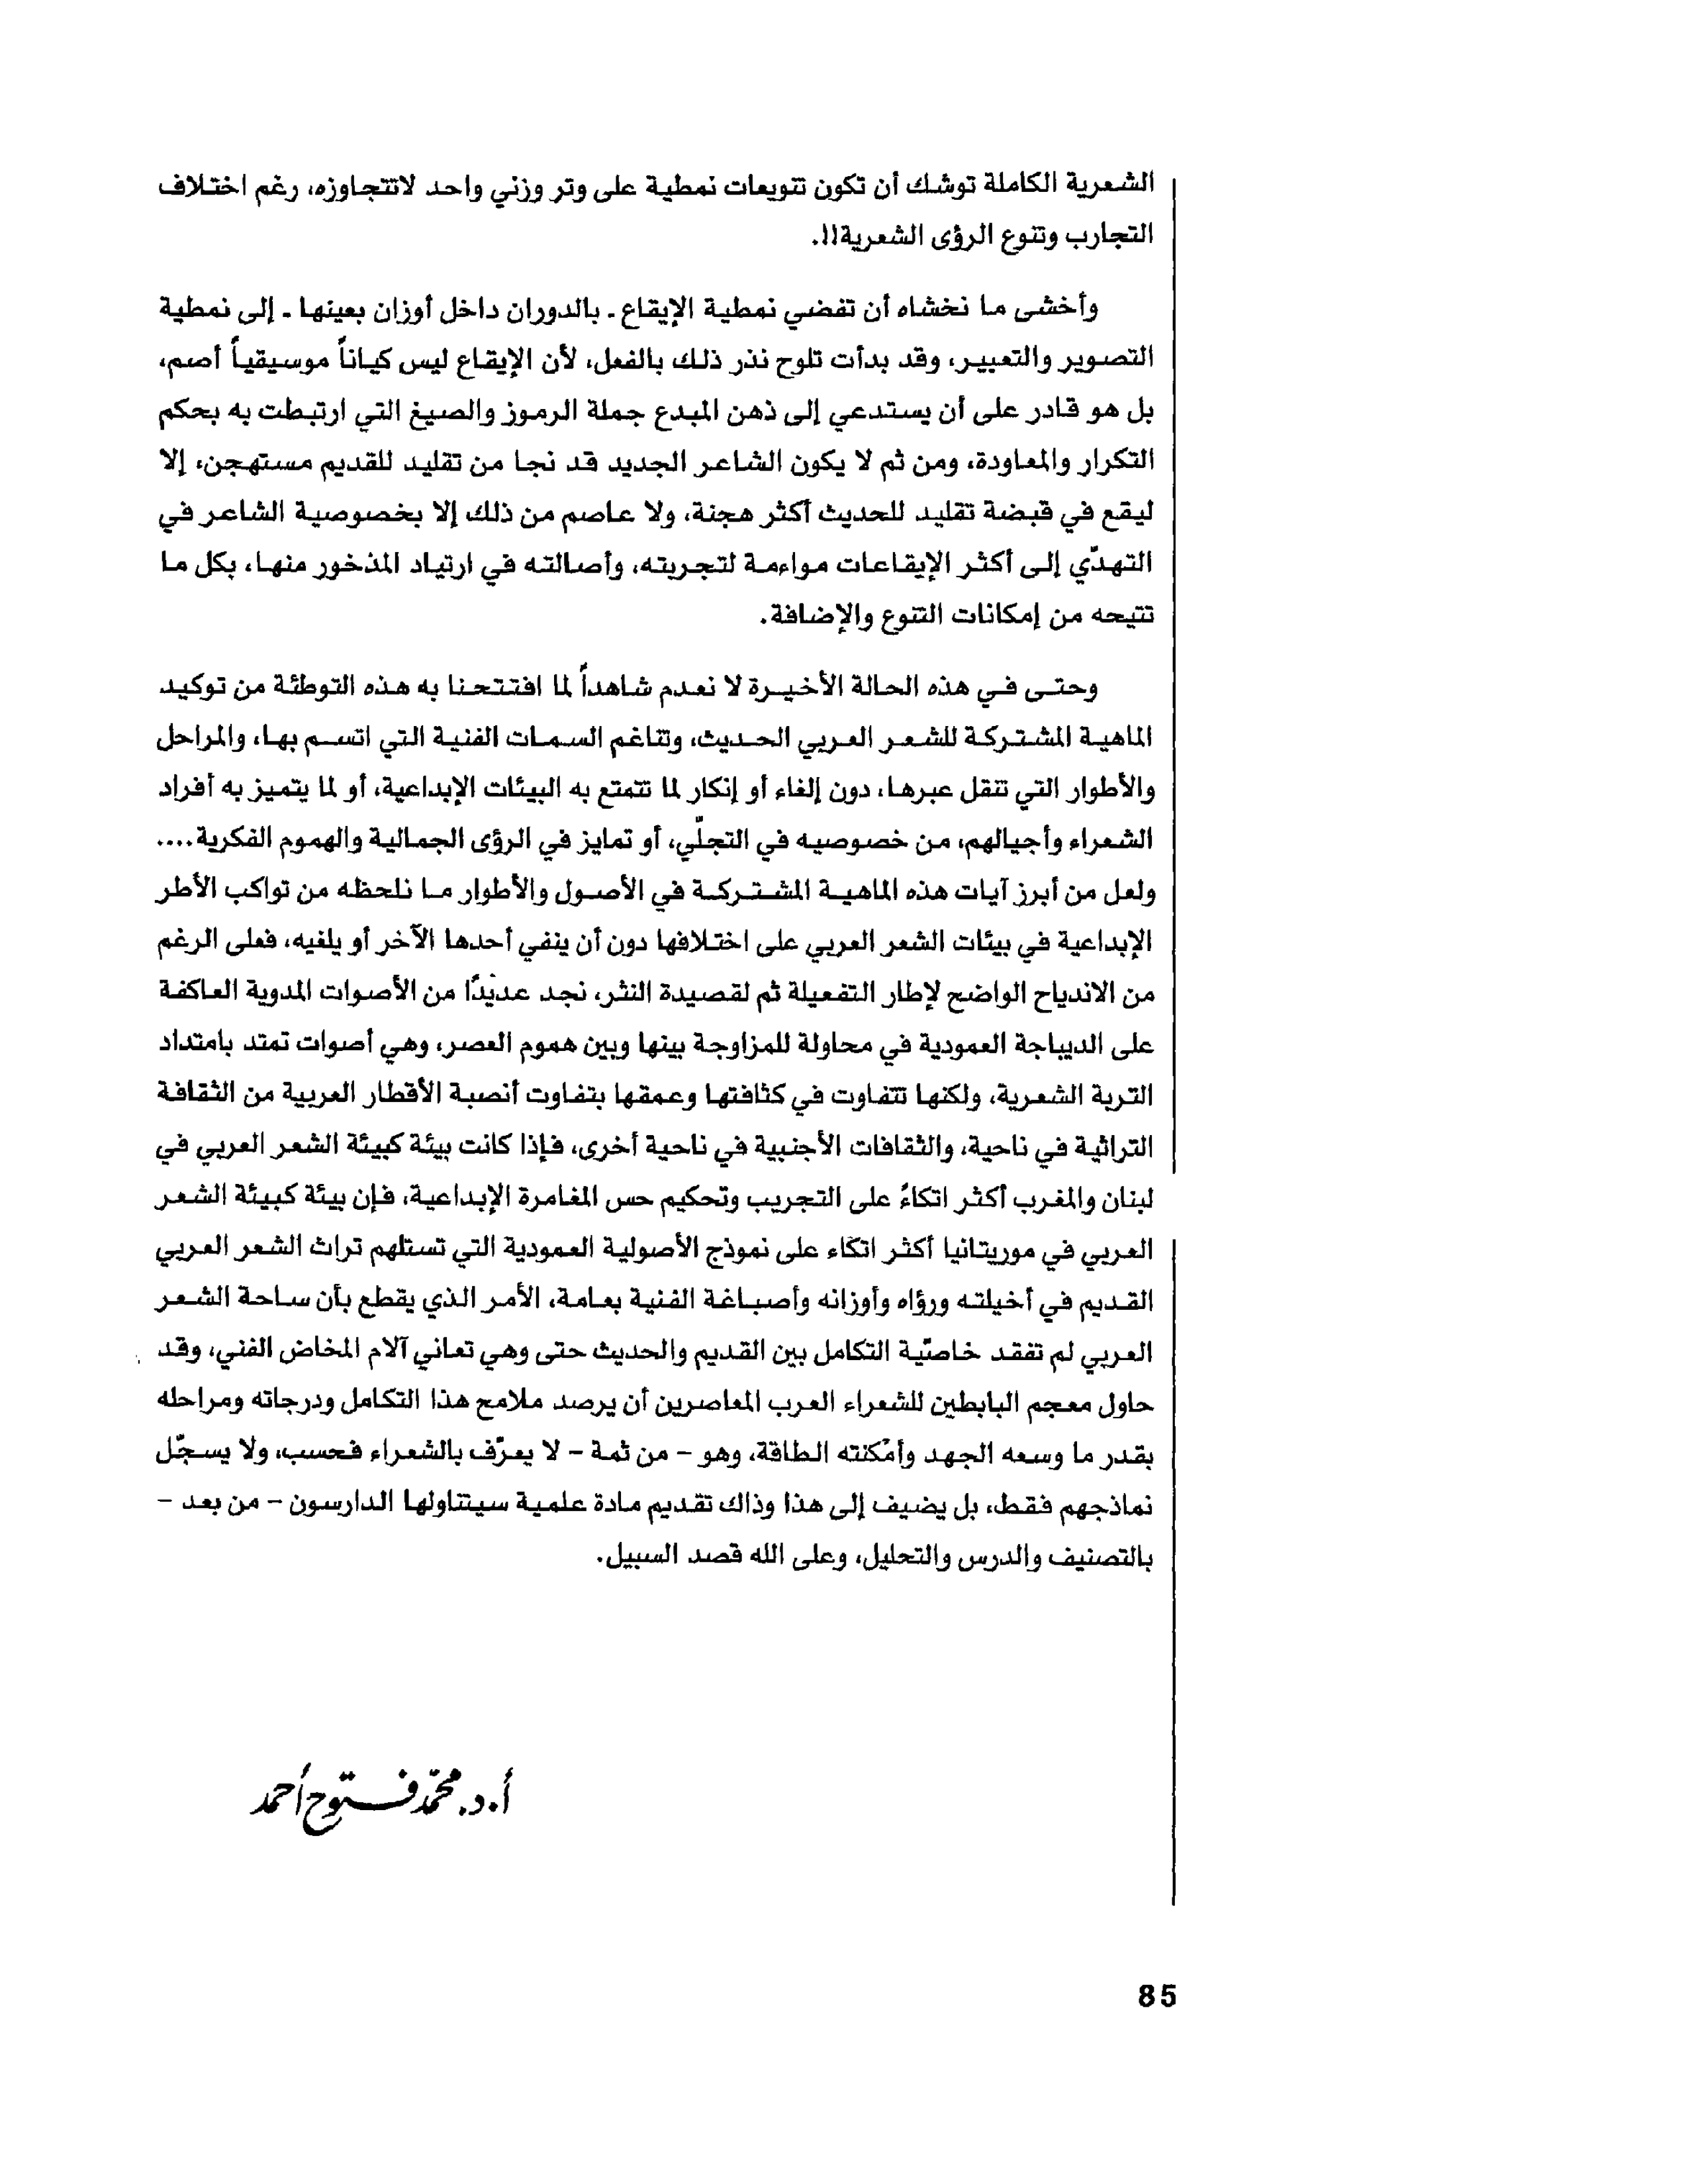 الشعرية الكاملة توشك أن تكون تنويعات نمطية على وتر وزني واحد لاتتجاوزه، رغم اختلاف
التجارب وتنوع الرؤى الشعرية!!.
وأخشى ما نخشاه أن تفضي نمطية الإيقاع ـ بالدوران داخل أوزان بعينها ـ إلى نمطية
التصوير والتعبير، وقد بدأت تلوح نذر ذلك بالفعل، لأن الإيقاع ليس كياناً موسيقياً أصم،
بل هو قادر على أن يستدعي إلى ذهن المبدع جملة الرموز والصيغ التي ارتبطت به بحكم
التكرار والمعاودة، ومن ثم لا يكون الشاعر الجديد قد نجا من تقليد للقديم مستهجن، إلا
ليقع في قبضة تقليد للحديث أكثر هجنة، ولا عاصم من ذلك إلا بخصوصية الشاعر في
التهدّي إلى أكثر الإيقاعات مواءمة لتجربته، وأصالته في ارتياد المذخور منها، بكل ما
تتيحه من إمكانات التنوع والإضافة.
وحتى في هذه الحالة الأخيرة لا نعدم شاهداً لما افتتحنا به هذه التوطئة من توكيد
الماهية المشتركة للشعر العربي الحديث، وتناغم السمات الفنية التي اتسم بها، والمراحل
والأطوار التي تنقل عبرها، دون إلغاء أو إنكار لما تتمتع به البيئات الإبداعية، أو لما يتميز به أفراد
الشعراء وأجيالهم، من خصوصيه في التجلّي، أو تمايز في الرؤى الجمالية والهموم الفكرية....
ولعل من أبرز آيات هذه الماهية المشتركة في الأصول والأطوار ما نلحظه من تواكب الأطر
الإبداعية في بيئات الشعر العربي على اختلافها دون أن ينفي أحدها الآخر أو يلغيه، فعلى الرغم
من الاندياح الواضح لإطار التفعيلة ثم لقصيدة النثر، نجد عديدًا من الأصوات المدوية العاكفة
على الديباجة العمودية في محاولة للمزاوجة بينها وبين هموم العصر، وهي أصوات تمتد بامتداد
التربة الشعرية، ولكنها تتفاوت في كثافتها وعمقها بتفاوت أنصبة الأقطار العربية من الثقافة
التراثية في ناحية، والثقافات الأجنبية في ناحية أخرى، فإذا كانت بيئة كبيئة الشعر العربي في
لبنان والمغرب أكثر اتكاءً على التجريب وتحكيم حس المغامرة الإبداعية، فإن بيئة كبيئة الشعر
العربي في موريتانيا أكثر اتكاء على نموذج الأصولية العمودية التي تستلهم تراث الشعر العربي
القديم في أخيلته ورؤاه وأوزانه وأصباغة الفنية بعامة، الأمر الذي يقطع بأن ساحة الشعر
العربي لم تفقد خاصّية التكامل بين القديم والحديث حتى وهي تعاني آلام المخاض الفني، وقد
حاول معجم البابطين للشعراء العرب المعاصرين أن يرصد ملامح هذا التكامل ودرجاته ومراحله
بقدر ما وسعه الجهد وأمْكنته الطاقة، وهو – من ثمة – لا يعرّف بالشعراء فحسب، ولا يسجّل
نماذجهم فقط، بل يضيف إلى هذا وذاك تقديم مادة علمية سيتناولها الدارسون – من بعد –
بالتصنيف والدرس والتحليل، وعلى الله قصد السبيل.
أ.د. محمّد فتوح أحمد
85